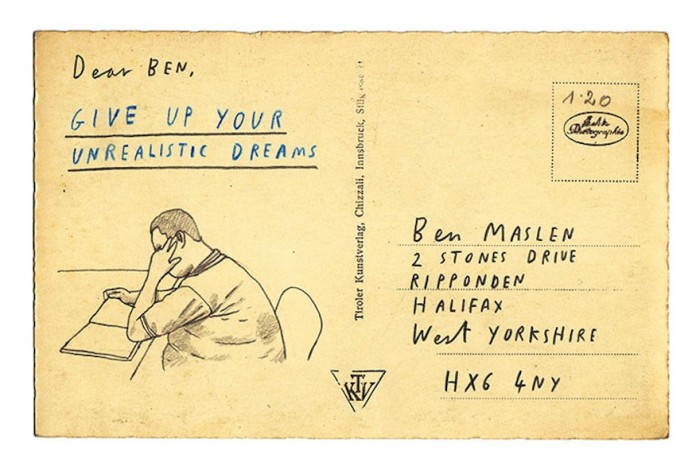 Dear BEN,
GIVE UP YOUR
UNREALISTIC DREAMS
Tiroler Kunstverlag, Chizzali, Innsbruck,
1.20
Echte
Photographie
Ben MASLEN
2 STONES DRIVE
RIPPONDEN
HALIFAX
West YORKSHIRE
HX6 4NY
KTV